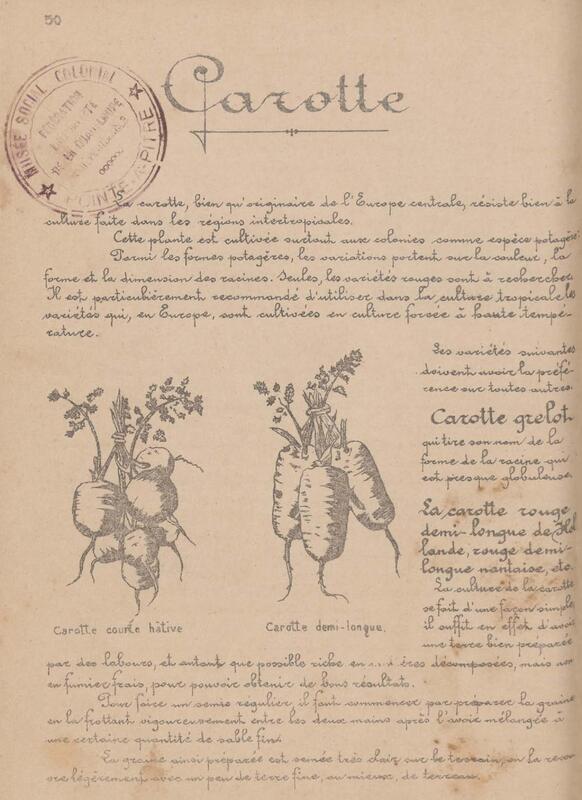 50
Carotte
MUSÉE SOCIAL COLONIAL
DE LA GUADELOUPE
La carotte, bien qu'originaire de l'Europe centrale, résiste bien à la
culture faite dans les régions intertropicales.
Cette plante est cultivée surtout aux colonies comme espèce potagère
Parmi les formes potagères, les variations portent sur la couleur, la
forme et la dimension des racines. Seules, les variétés rouges sont à rechercher
Il est particulièrement recommandé d'utiliser dans la culture tropicale les
variétés qui, en Europe, sont cultivées en culture forcée à haute tempé-
rature.
Les variétés suivantes
doivent avoir la préfé-
rence sur toutes autres.
Carotte grelot
qui tire son nom de la
forme de la racine qui
est presque globuleuse
La carotte rouge
demi-longue de Hol
lande, rouge demi-
longue nantaise, etc.
La culture de la carotte
se fait d'une façon simple
il suffit en effet d'avoir
une terre bien préparée
Carotte courte hâtive
Carotte demi-longue.
par des labours, et autant que possible riche en décomposées, mais non
en fumier frais, pour pouvoir obtenir de bons résultats.
Pour faire un semis régulier, il faut commencer par préparer la graine
en la frottant vigoureusement entre les deux mains après l'avoir mélangée à
une certaine quantité de sable fin.
La graine ainsi préparée est semée très clair sur le terrain, on la recou
vre légèrement avec un peu de terre fine, ou mieux, de terreau.